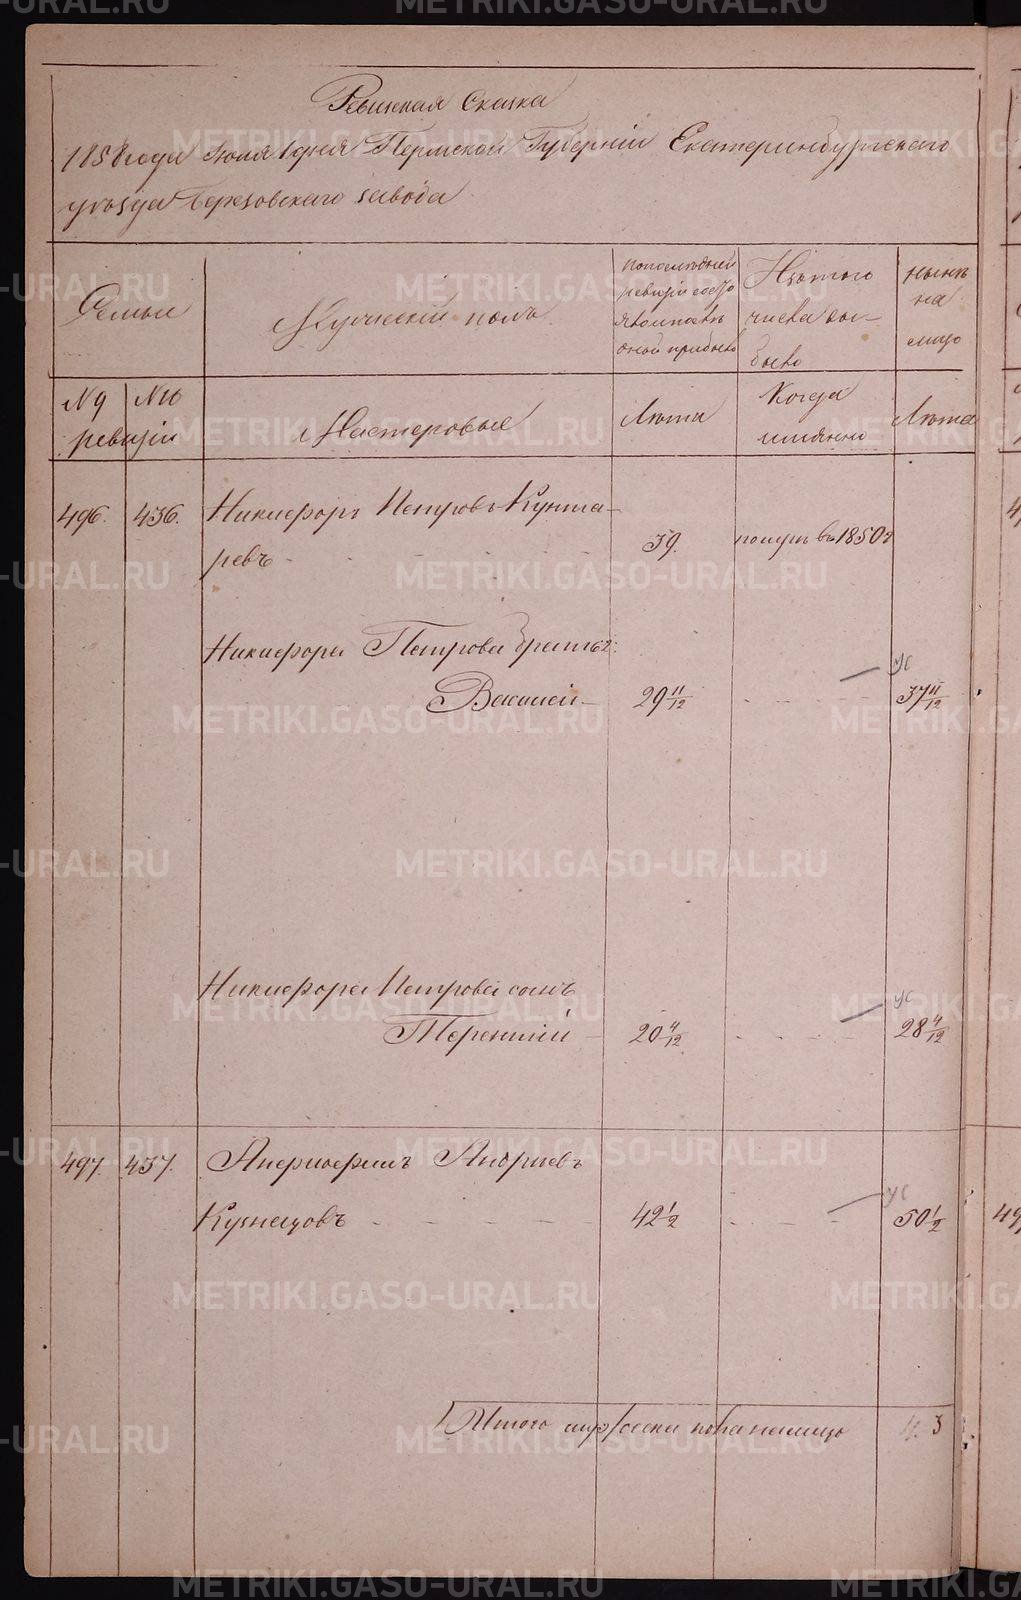 Ревижская Сказка
1858 года Июля 1 дня Пермской Губерніи Екатеринбургскаго
уѣзда Березовскаго завода
Семьи
Мужескій полъ
По последней
ревизіи состо
яло и послѣ
оной прибыло
Изъ того
числа вы-
было
нынѣ
на
лицо
№ 9
№ 10
ревизіи
Мастеровые
Лѣта
Когда
имянно
Лѣта
496.
436.
Никифоръ Петровъ Кунта-
ревъ
39.
помръ въ 1850 г
Никифора Петрова братъ
Василій
29 11/12
ус
37 11/12
Никифора Петрова сынъ
Терентій
20 4/12
ус
28 4/12
497.
437.
Анфиногенъ Андреевъ
Кузнецовъ
42 1/2
ус
50 1/2
Итого мужеска пола на лицо
3
METRIKI.GASO-URAL.RU